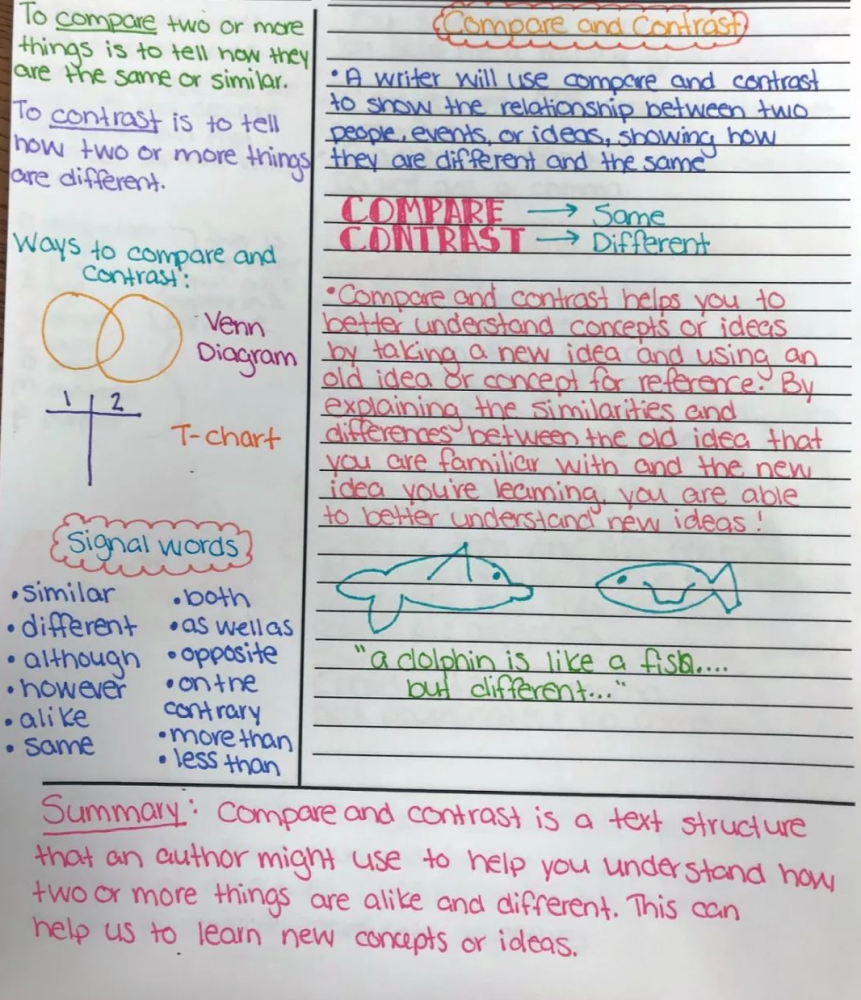 To compare two or more
things is to tell how they
are the same or similar.
To contrast is to tell
how two or more things
are different.
Ways to compare and
contrast:
Venn
Diagram
1 2
T-chart
Signal words
• similar
• different
• although
• however
• alike
• same
• both
• as well as
• opposite
• on the
contrary
• more than
• less than
Compare and Contrast
• A writer will use compare and contrast
to show the relationship between two
people, events, or ideas, showing how
they are different and the same
COMPARE → Same
CONTRAST → Different
• Compare and contrast helps you to
better understand concepts or ideas
by taking a new idea and using an
old idea or concept for reference. By
explaining the similarities and
differences between the old idea that
you are familiar with and the new
idea you're learning, you are able
to better understand new ideas!
"a dolphin is like a fish....
but different..."
Summary: Compare and contrast is a text structure
that an author might use to help you understand how
two or more things are alike and different. This can
help us to learn new concepts or ideas.